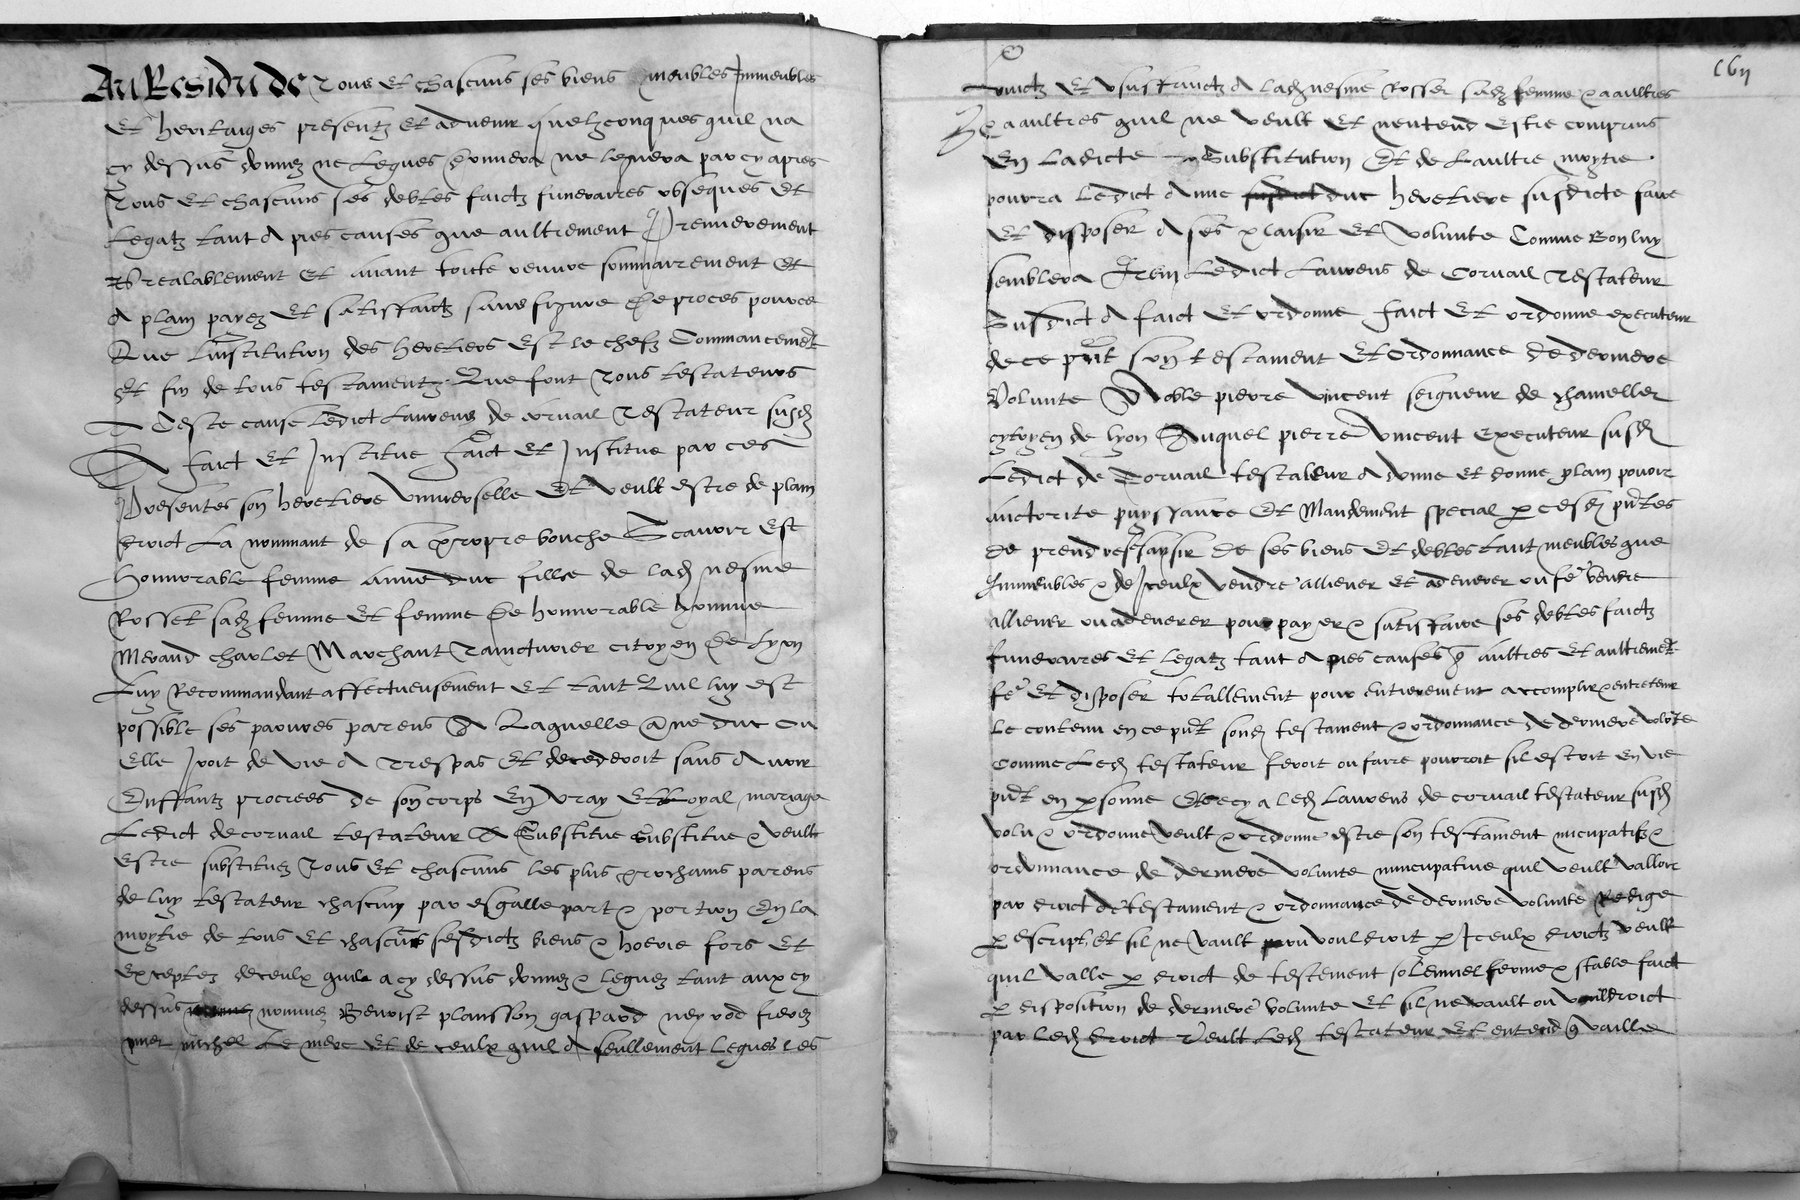 Au Residu de Tous Et chascuns ses biens meubles Immeubles
Et heritaiges presentz Et advenir quelzconques quil na
cy dessus donnez ne Legues donnera ne leguera par cy apres
Tous Et chascuns ses debtes faictz funeraires obseques Et
Legatz tant A pies causes que aultrement Premierement
Et prealablement Et avant toicte euvre sommairement Et
A plain payez Et satisfaictz sans figure de proces pource
Que Linstitution des heretiers Est le chefz Commancemẽt
Et fin de tous testamentz Que font Tous testateurs
A Ceste cause Ledict Laurens de corvail Testateur susd
A faict Et Institue faict Et Institue par ces
Presentes son heretiere universelle Et veult estre de plain
droict La nommant de sa propre bouche Scavoir Est
honnorable femme Anne duc fille de lad nesme
Rosset sad femme Et femme de honnorable homme
Meraud charlet Marchant Taincturier citoyen de Lyon
Luy Recommandant affectueusement Et tant Quil luy est
possible ses pauvres parens A Laquelle Anne duc ou
Elle Iroit de vie A Trespas Et decederoit sans Avoir
Enffantz procrees de son corps En vray Et Loyal mariage
Ledict de corvail testateur A Substitue Substitue & veult
Estre substituez Tous Et chascuns les plus prochains parens
de luy testateur chascun par esgalle part & portion En la
moytie de tous Et chascuns sesdictz biens & hoerie fors Et
Exceptez deceulx quil a cy dessus donnez & leguez tant aux cy
dessus nommez Benoist plansson gaspard neyrod fierez
michel Le mere Et de ceulx quil A seullement Legues les
fruictz Et Usufruictz A lad nesme Rosset sad femme & a aultres
& a aultres quil ne veult Et nentend Estre comprins
En Ladicte Substitution Et de Laultre moytie
pourra Ledict Anne duc heretiere susdicte faire
Et disposer A ses plaisir Et volunte Comme Bon luy
semblera Item Ledict Laurens de Corvail Testateur
Susdict A faict Et ordonne faict Et ordonne executeur
de ce pñt son testament Et Ordonnance de derniere
Volunte Noble pierre vincent seigneur de chameller
cytoyen de lyon Auquel pierre vincent Executeur susd
Ledict de Corvail testateur A donne et donne plain povoir
Auctorite puyssance Et Mandement special p cesd pñtes
de prendre & saysir de ses biens Et debtes tant meubles que
Immeubles & de Iceulx vendre alliener Et adenerer ou fe vendre
alliener ou adenerer pour payer & satisfaire ses debtes faictz
funeraires Et legatz tant A pies causes q aultres Et aultremẽt
fe Et disposer totallement pour entierement accomplir & entretenir
Le contenu en ce pñt sond testament & ordonnance de derniere volũte
Comme Led testateur feroit ou faire pourroit sil estoit En vie
pñt en psonne Et ecy a led Laurens de corvail testateur susd
volu & ordonne veult & ordonne estre son testament nuncupatifz &
ordonnance de derniere volunte nuncupative quil veult valloir
par droict de testament & ordonnance de derniere volunte Redige
p escript Et sil ne vault ou vouldroit p Iceulx droictz veult
quil valle p droict de testement solennel ferme & stable faict
p disposition de derniere volunte Et sil ne vault ou vauldroict
par led droict Veult Led testateur Et entend q vaille